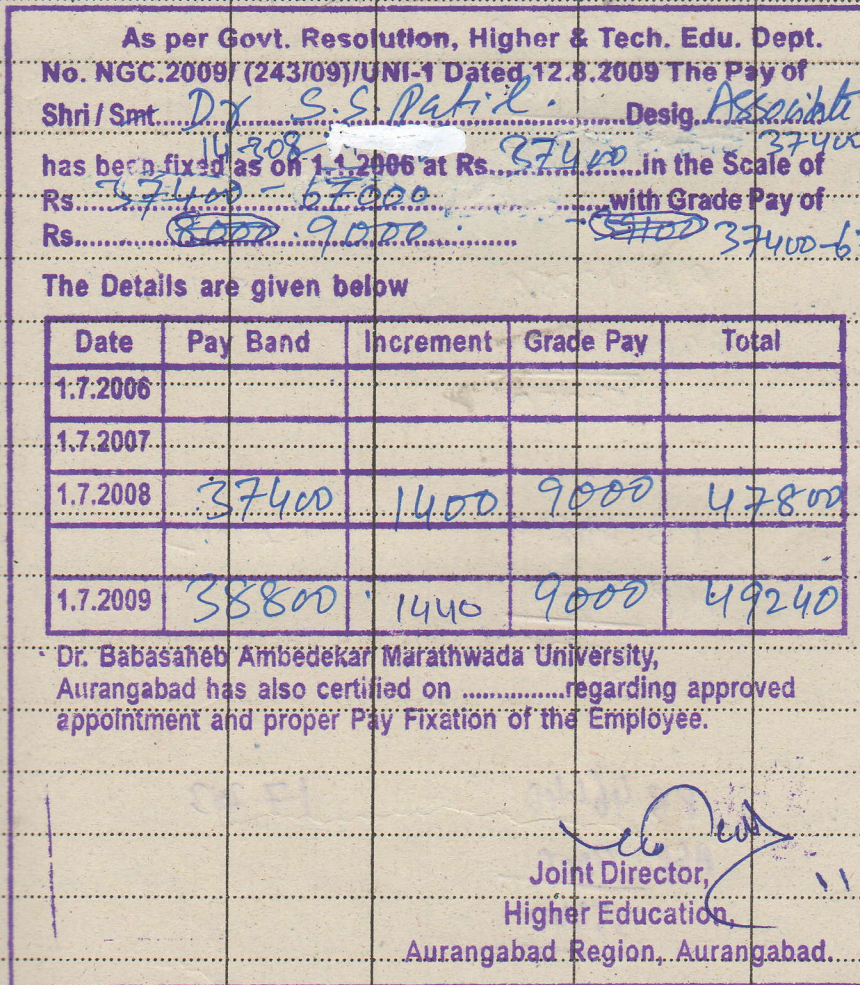 As per Govt. Resolution, Higher & Tech. Edu. Dept.
No. NGC.2009/ (243/09)/UNI-1 Dated 12.8.2009 The Pay of
Shri / Smt. Dr S.S. Patil. Desig. Associate
14-308 37400
has been fixed as on 1.1.2006 at Rs. 37400 in the Scale of
Rs. 37400 - 67000 with Grade Pay of
Rs. 8000 9000 37400-67
The Details are given below
Date Pay Band Increment Grade Pay Total
1.7.2006
1.7.2007
1.7.2008 37400 1400 9000 47800
1.7.2009 38800 1440 9000 49240
Dr. Babasaheb Ambedekar Marathwada University,
Aurangabad has also certified on ...............regarding approved
appointment and proper Pay Fixation of the Employee.
Joint Director,
Higher Education,
Aurangabad Region, Aurangabad.